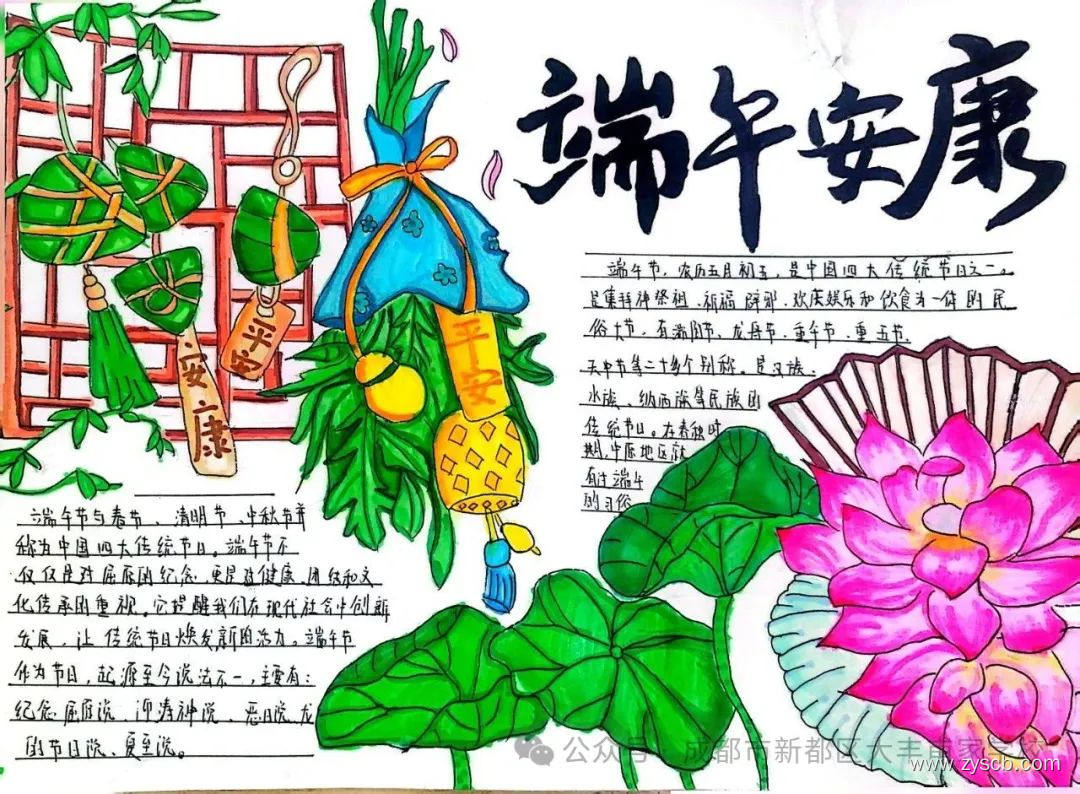 端午安康
端午节，农历五月初五，是中国四大传统节日之一。
是集拜神祭祖、祈福辟邪、欢庆娱乐和饮食为一体的民
俗大节，有端阳节、龙舟节、重午节、重五节、
天中节等二十多个别称。是汉族、
水族、纳西族等民族的
传统节日。在春秋时
期，中原地区就
有过端午
的习俗
平安
安康
平安
端午节与春节、清明节、中秋节并
称为中国四大传统节日。端午节不
仅仅是对屈原的纪念，更是对健康、团结和文
化传承的重视。它提醒我们在现代社会中创新
发展，让传统节日焕发新的活力。端午节
作为节日，起源至今说法不一，主要有：
纪念屈原说、迎涛神说、恶日说、龙
的节日说、夏至说。
公众号·成都市新都区大丰甫家学校
www.zyscb.com